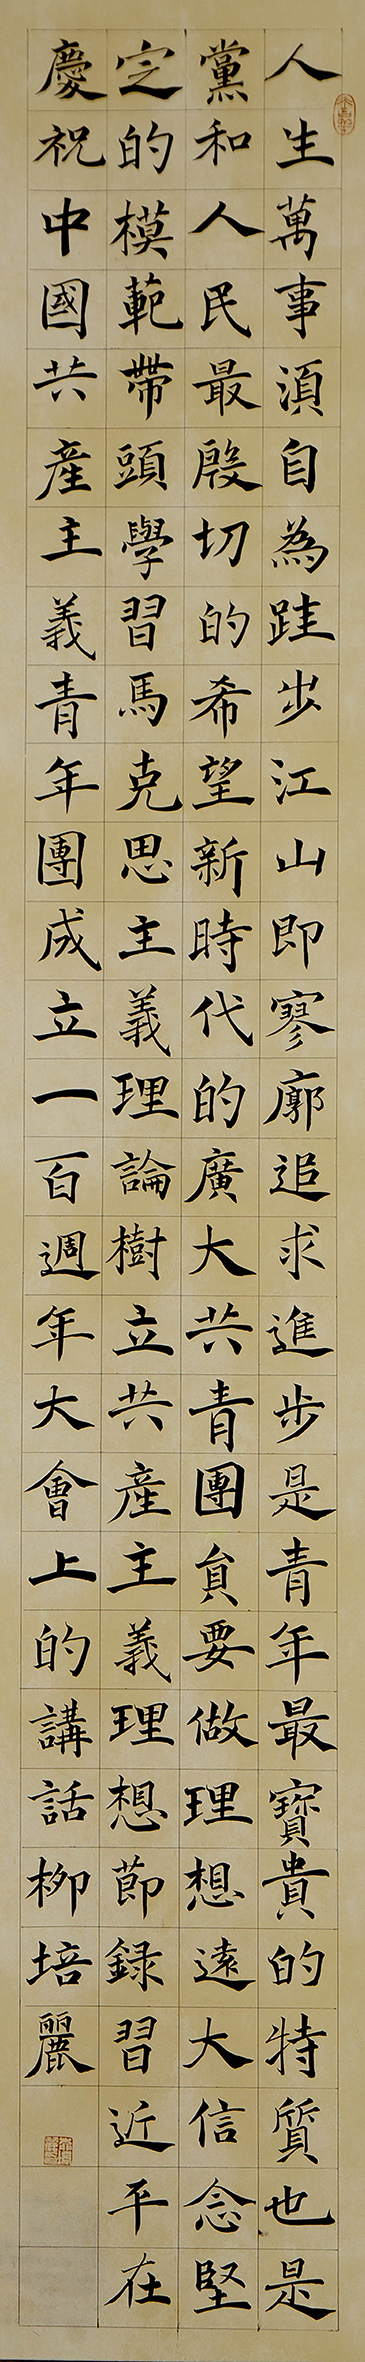 人生萬事須自為跬步江山即寥廓追求進步是青年最寶貴的特質也是
黨和人民最殷切的希望新時代的廣大共青團員要做理想遠大信念堅
定的模範帶頭學習馬克思主義理論樹立共產主義理想節録習近平在
慶祝中國共產主義青年團成立一百週年大會上的講話柳培麗